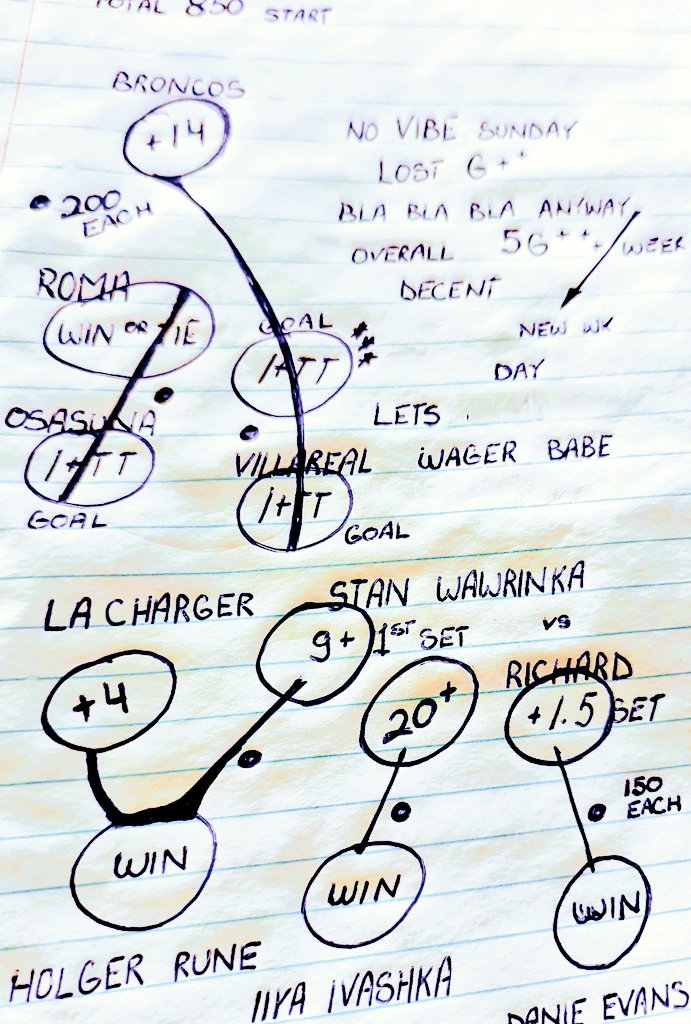 TOTAL 850 START
BRONCOS
+14
NO VIBE SUNDAY
LOST G++
BLA BLA BLA ANYWAY
OVERALL 5G+++ WEEK
DECENT
NEW WK
DAY
LETS
WAGER BABE
200
EACH
ROMA
WIN OR TIE
OSASUNA
1+TT
GOAL
GOAL
1+TT
VILLAREAL
1+TT
GOAL
LA CHARGER
+4
STAN WAWRINKA
9+ 1ST SET
vs
RICHARD
20+
+1.5 SET
150
EACH
WIN
WIN
WIN
HOLGER RUNE
IIYA IVASHKA
DANIE EVANS